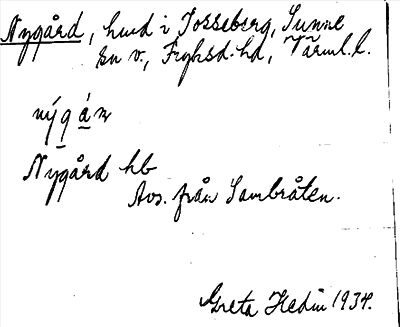 Nygård, hmd i Tosseberg, Sunne
sn v., Fryksd. hd, Värml. l.
nýgán
Nygård hb
Avs. från Sambråten.
Greta Hedin 1934.